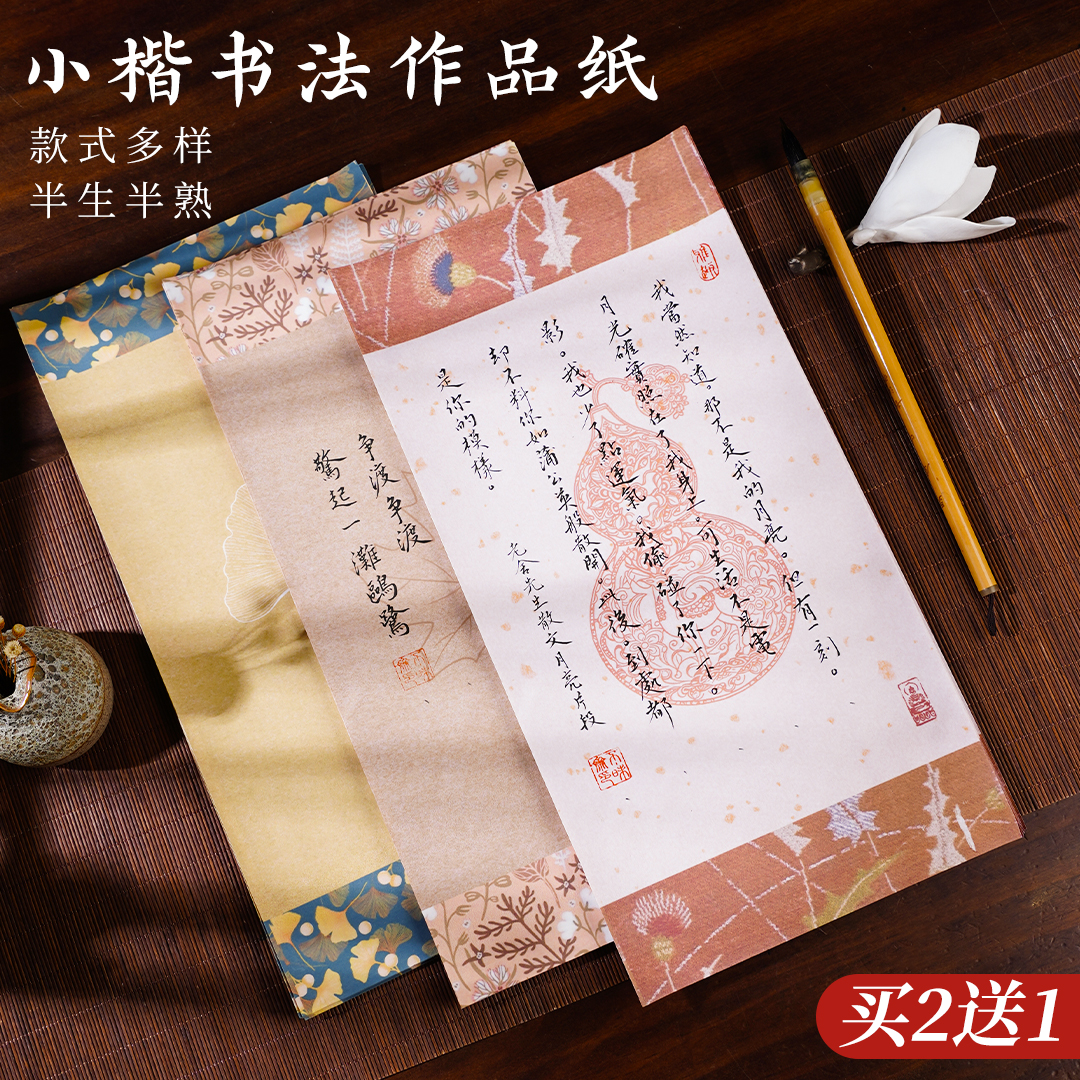 小楷书法作品纸
款式多样
半生半熟
我當然知道。那不是我的月亮。但有一刻。
月光確實照在了我身上。可生活不是電
影。我也少了點運氣。我偷碰了你一下。
却不料你如蒲公英般散開。此後。到處都
是你的模樣。
老舍先生散文月亮片段
争渡争渡
驚起一灘鷗鷺
买2送1